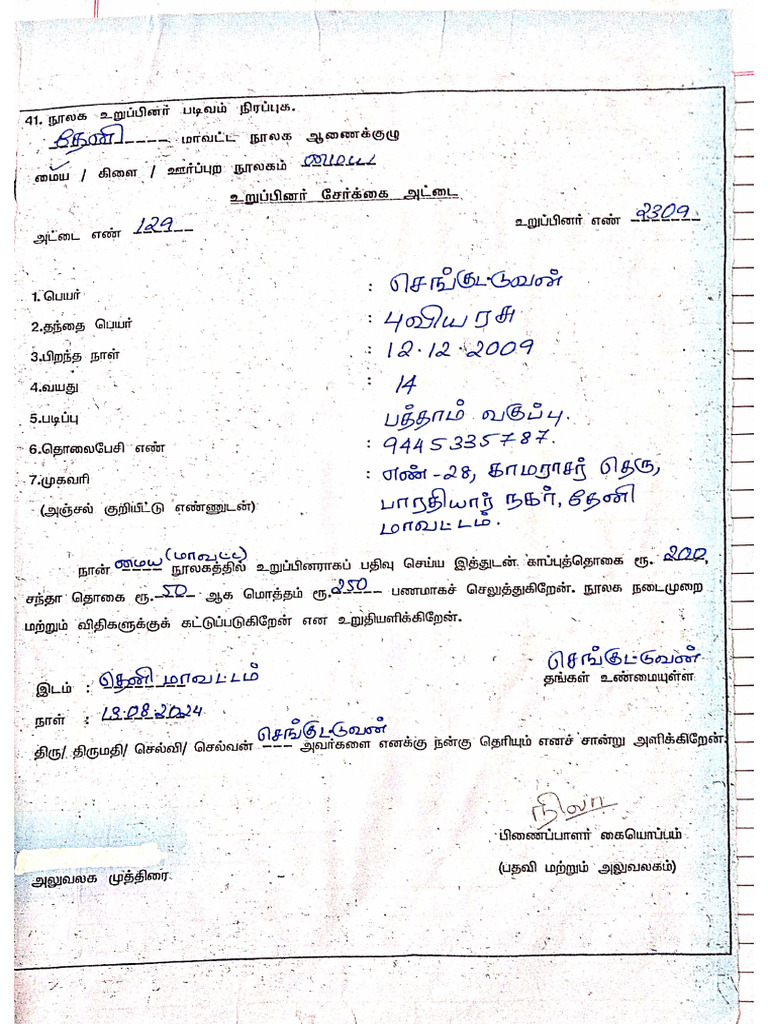 41. நூலக உறுப்பினர் படிவம் நிரப்புக.
தேனி ---- மாவட்ட நூலக ஆணைக்குழு
மைய / கிளை / ஊர்ப்புற நூலகம் மைய
உறுப்பினர் சேர்க்கை அட்டை
அட்டை எண் 129 உறுப்பினர் எண் 2309
1.பெயர் : செங்குட்டுவன்
2.தந்தை பெயர் : புவியரசு
3.பிறந்த நாள் : 12.12.2009
4.வயது : 14
5.படிப்பு பத்தாம் வகுப்பு.
6.தொலைபேசி எண் : 9445335787.
7.முகவரி : எண்-28, காமராசர் தெரு,
(அஞ்சல் குறியீட்டு எண்ணுடன்) பாரதியார் நகர், தேனி
மாவட்டம்.
நான் மைய (மாவட்ட) நூலகத்தில் உறுப்பினராகப் பதிவு செய்ய இத்துடன் காப்புத்தொகை ரூ. 200,
சந்தா தொகை ரூ. 50 ஆக மொத்தம் ரூ. 250 பணமாகச் செலுத்துகிறேன். நூலக நடைமுறை
மற்றும் விதிகளுக்குக் கட்டுப்படுகிறேன் என உறுதியளிக்கிறேன்.
செங்குட்டுவன்
இடம் : தெனி மாவட்டம் தங்கள் உண்மையுள்ள
நாள் : 13.08.2024
திரு/ திருமதி/ செல்வி/ செல்வன் செங்குட்டுவன் --- அவர்களை எனக்கு நன்கு தெரியும் எனச் சான்று அளிக்கிறேன்.
நிலா
பிணைப்பாளர் கையொப்பம்
அலுவலக முத்திரை (பதவி மற்றும் அலுவலகம்)